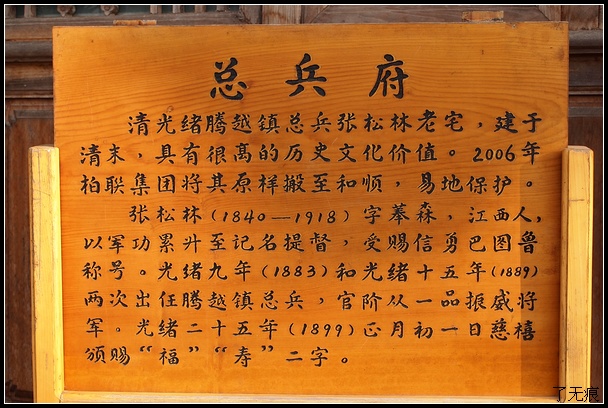 总兵府
清光绪腾越镇总兵张松林老宅，建于
清末，具有很高的历史文化价值。2006年
柏联集团将其原样搬至和顺，易地保护。
张松林（1840—1918）字蓁森，江西人，
以军功累升至记名提督，受赐信勇巴图鲁
称号。光绪九年（1883）和光绪十五年（1889）
两次出任腾越镇总兵，官阶从一品振威将
军。光绪二十五年（1899）正月初一日慈禧
颁赐“福”“寿”二字。
了无痕